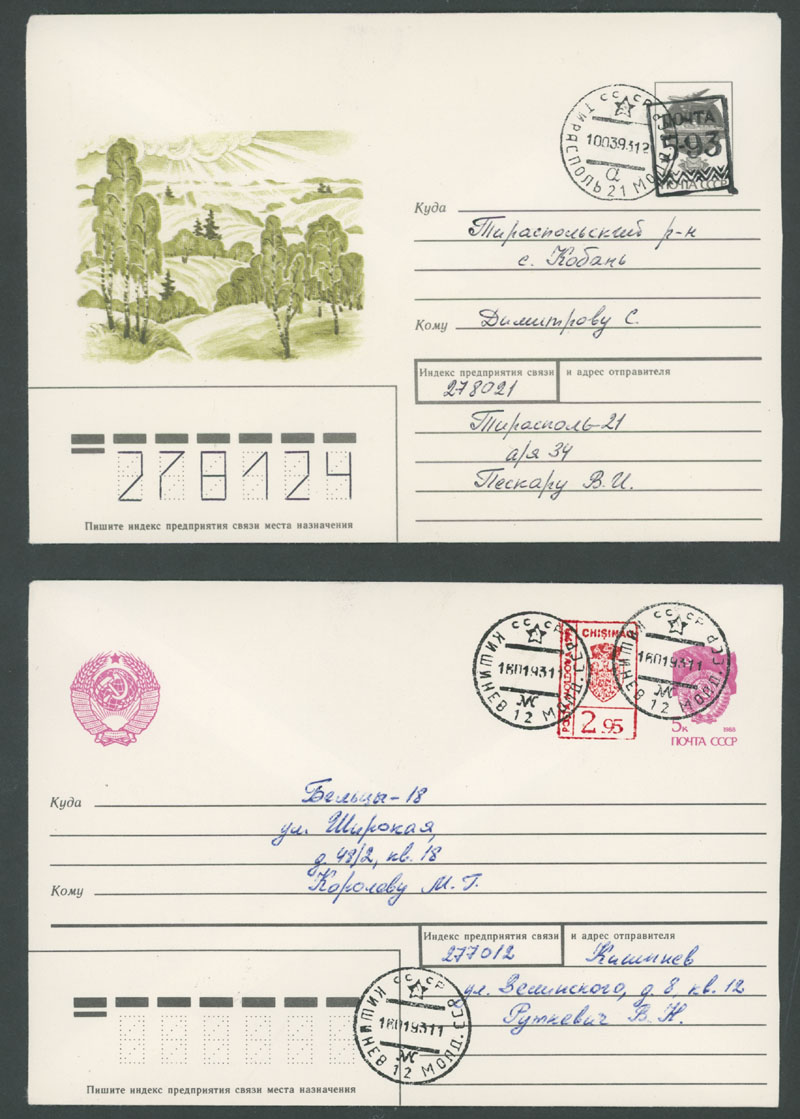 СССР
ТИРАСПОЛЬ 21
100393 12
а
ПОЧТА
5-93
ПОЧТА СССР
Куда
Тираспольский р-н
с. Кобань
Кому Димитрову С.
Индекс предприятия связи и адрес отправителя
278021
Тирасполь-21
а/я 34
Пескару В.И.
278124
Пишите индекс предприятия связи места назначения
СССР
КИШИНЕВ 12 МОЛД. ССР
180193 11
Ж
CHIȘINĂU
2.95
СССР
КИШИНЕВ 12 МОЛД. ССР
180193 11
Ж
5к 1988
ПОЧТА СССР
Куда Бельцы-18
ул. Широкая,
д. 48/2, кв. 18
Кому Королову М.Г.
Индекс предприятия связи и адрес отправителя
277012 Кишинев
ул. Зелинского, д. 8 кв. 12
Руткевич В.Н.
СССР
КИШИНЕВ 12 МОЛД. ССР
180193 11
Ж
Пишите индекс предприятия связи места назначения